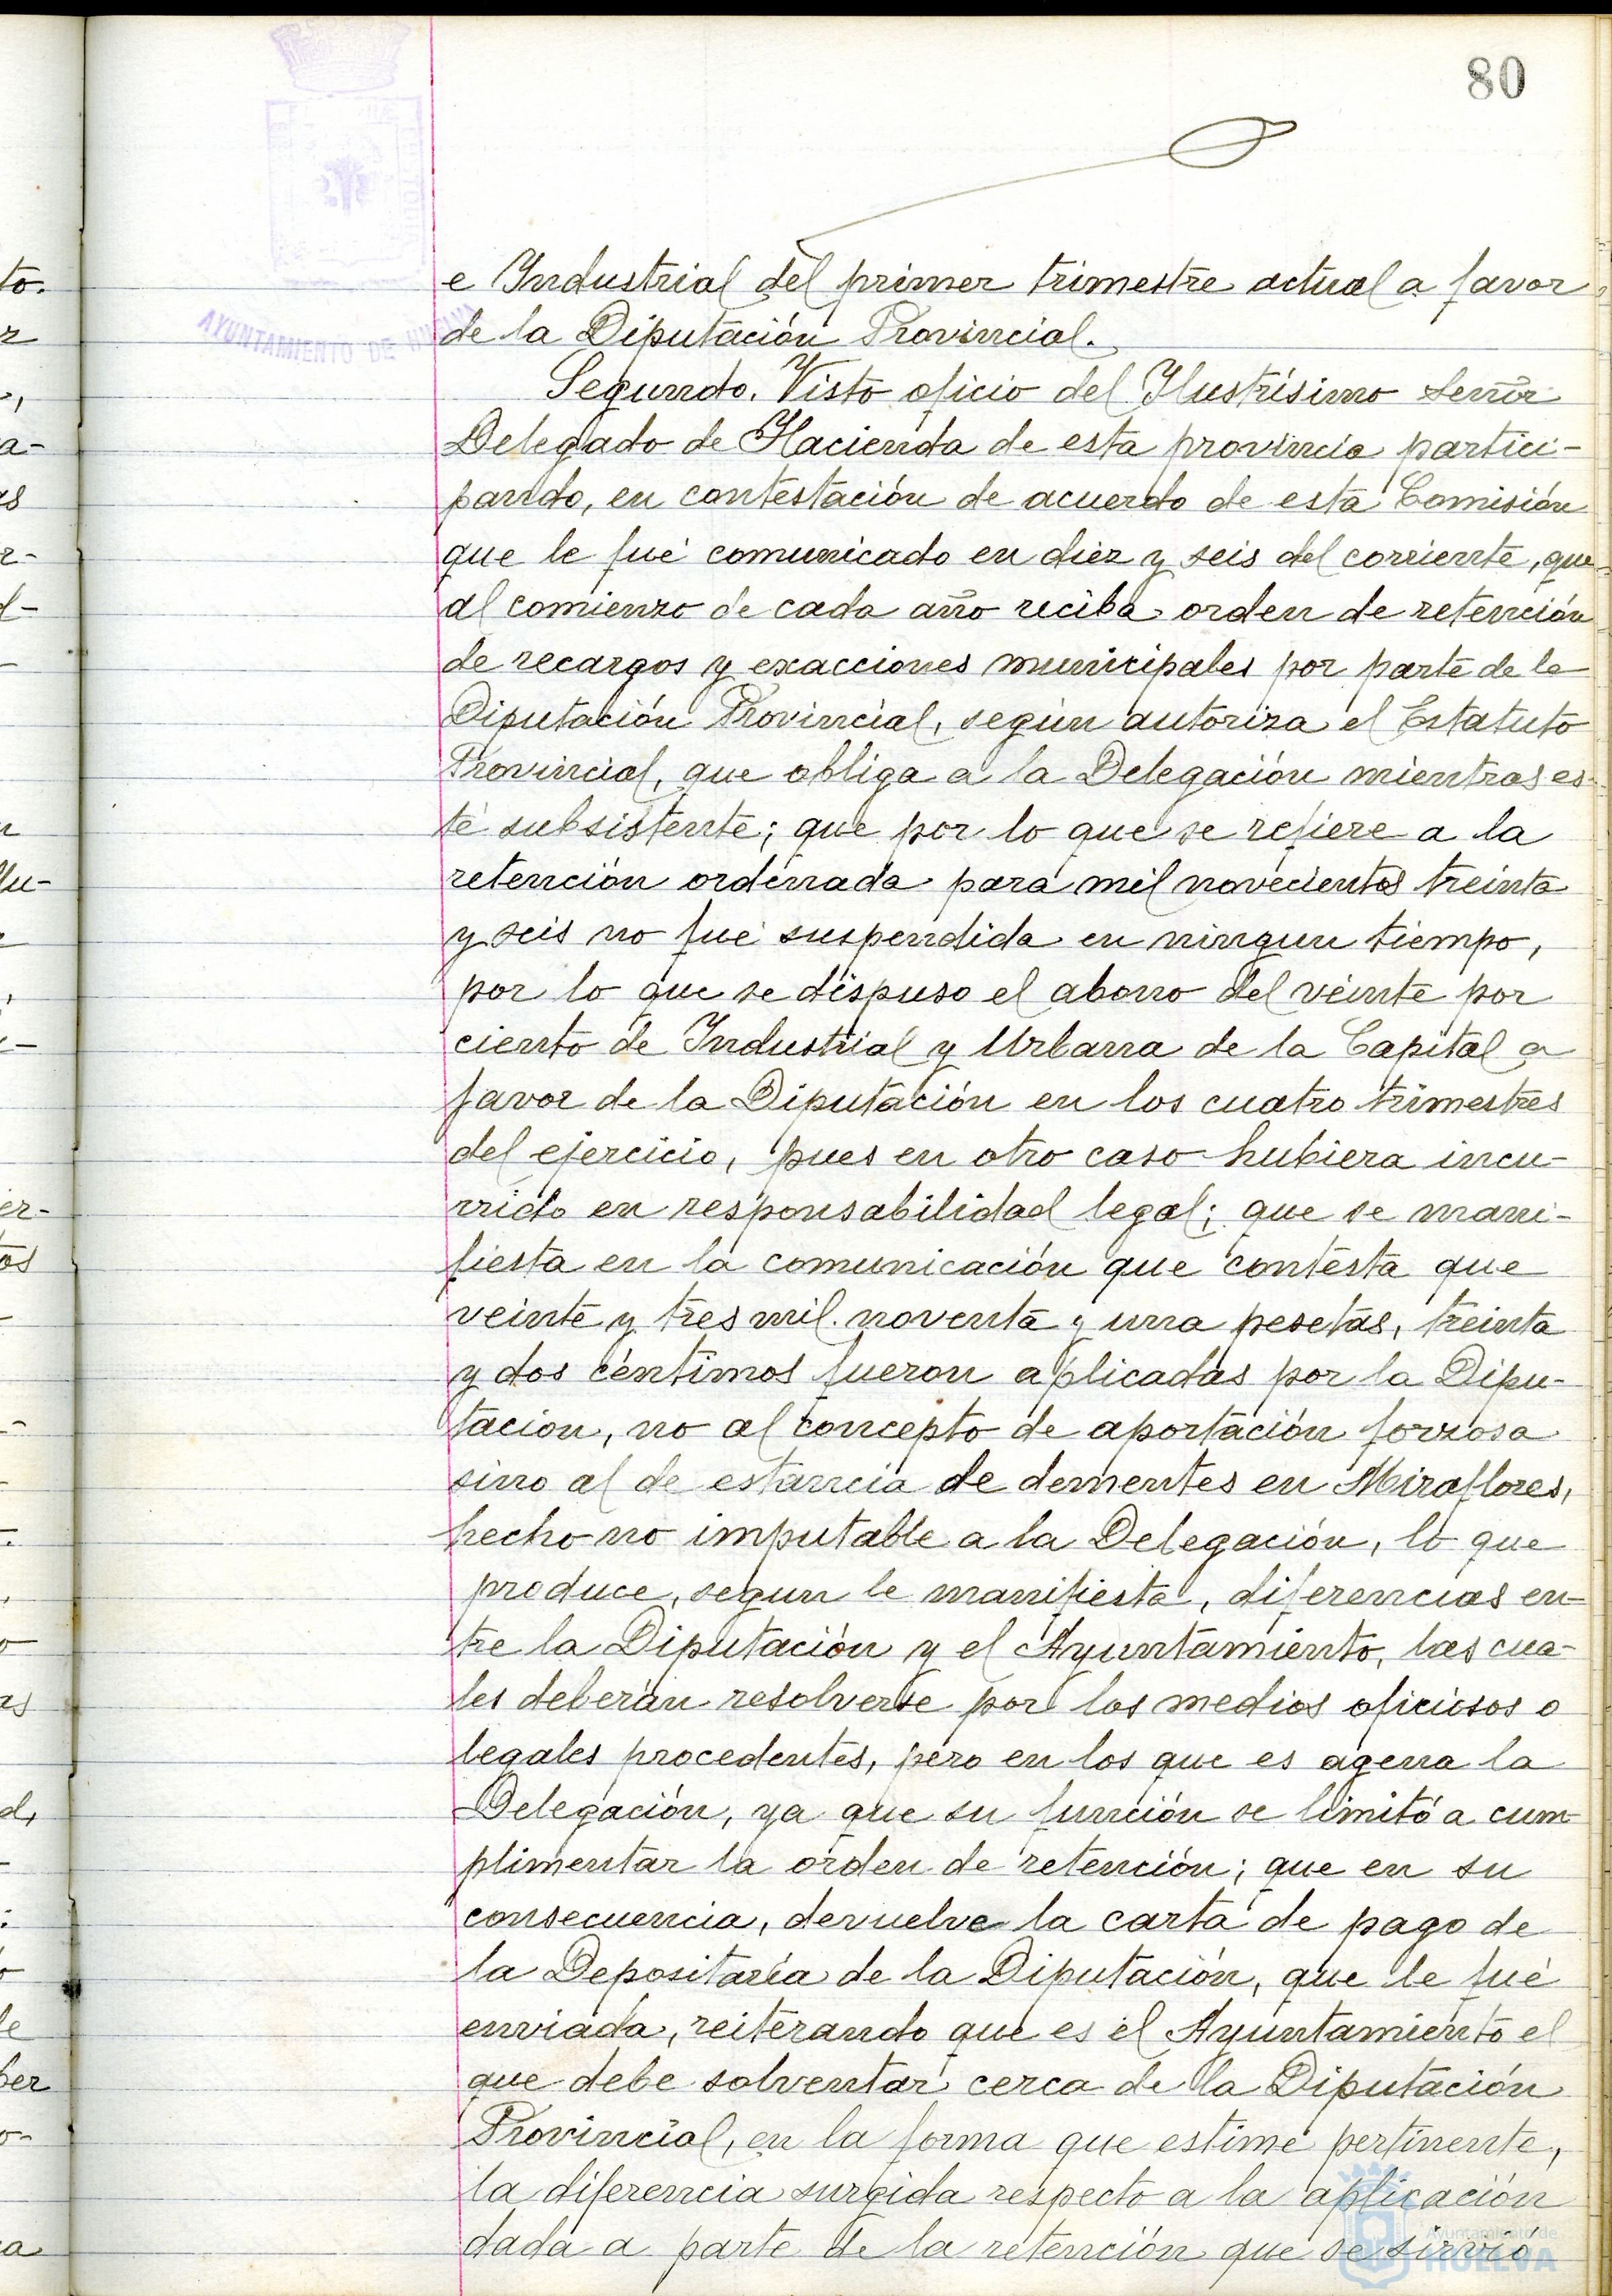 80
e Industrial del primer trimestre actual a favor
de la Diputación Provincial.
Segundo. Visto oficio del Ilustrísimo Señor
Delegado de Hacienda de esta provincia partici-
pando, en contestación de acuerdo de esta Comisión
que le fué comunicado en diez y seis del corriente, que
al comienzo de cada año reciba orden de retención
de recargos y exacciones municipales por parte de la
Diputación Provincial, según autoriza el Estatuto
Provincial, que obliga a la Delegación mientras es-
té subsistente; que por lo que se refiere a la
retención ordenada para mil novecientos treinta
y seis no fué suspendida en ningun tiempo,
por lo que se dispuso el abono del veinte por
ciento de Industrial y Urbana de la Capital a
favor de la Diputación en los cuatro trimestres
del ejercicio, pues en otro caso hubiera incu-
rrido en responsabilidad legal; que se mani-
fiesta en la comunicación que contesta que
veinte y tres mil noventa y una pesetas, treinta
y dos céntimos fueron aplicadas por la Dipu-
tacion, no al concepto de aportación forzosa
sino al de estancia de dementes en Miraflores,
hecho no imputable a la Delegación, lo que
produce, segun le manifiesta, diferencias en-
tre la Diputación y el Ayuntamiento, las cua-
les deberán resolverse por los medios oficiosos o
legales procedentes, pero en los que es agena la
Delegación, ya que su función se limitó a cum-
plimentar la orden de retención; que en su
consecuencia, devuelve la carta de pago de
la Depositaría de la Diputación, que le fué
enviada, reiterando que es el Ayuntamiento el
que debe solventar cerca de la Diputación
Provincial, en la forma que estime pertinente,
la diferencia surgida respecto a la aplicación
dada a parte de la retención que se sirvió
AYUNTAMIENTO DE HUELVA
Ayuntamiento de
HUELVA